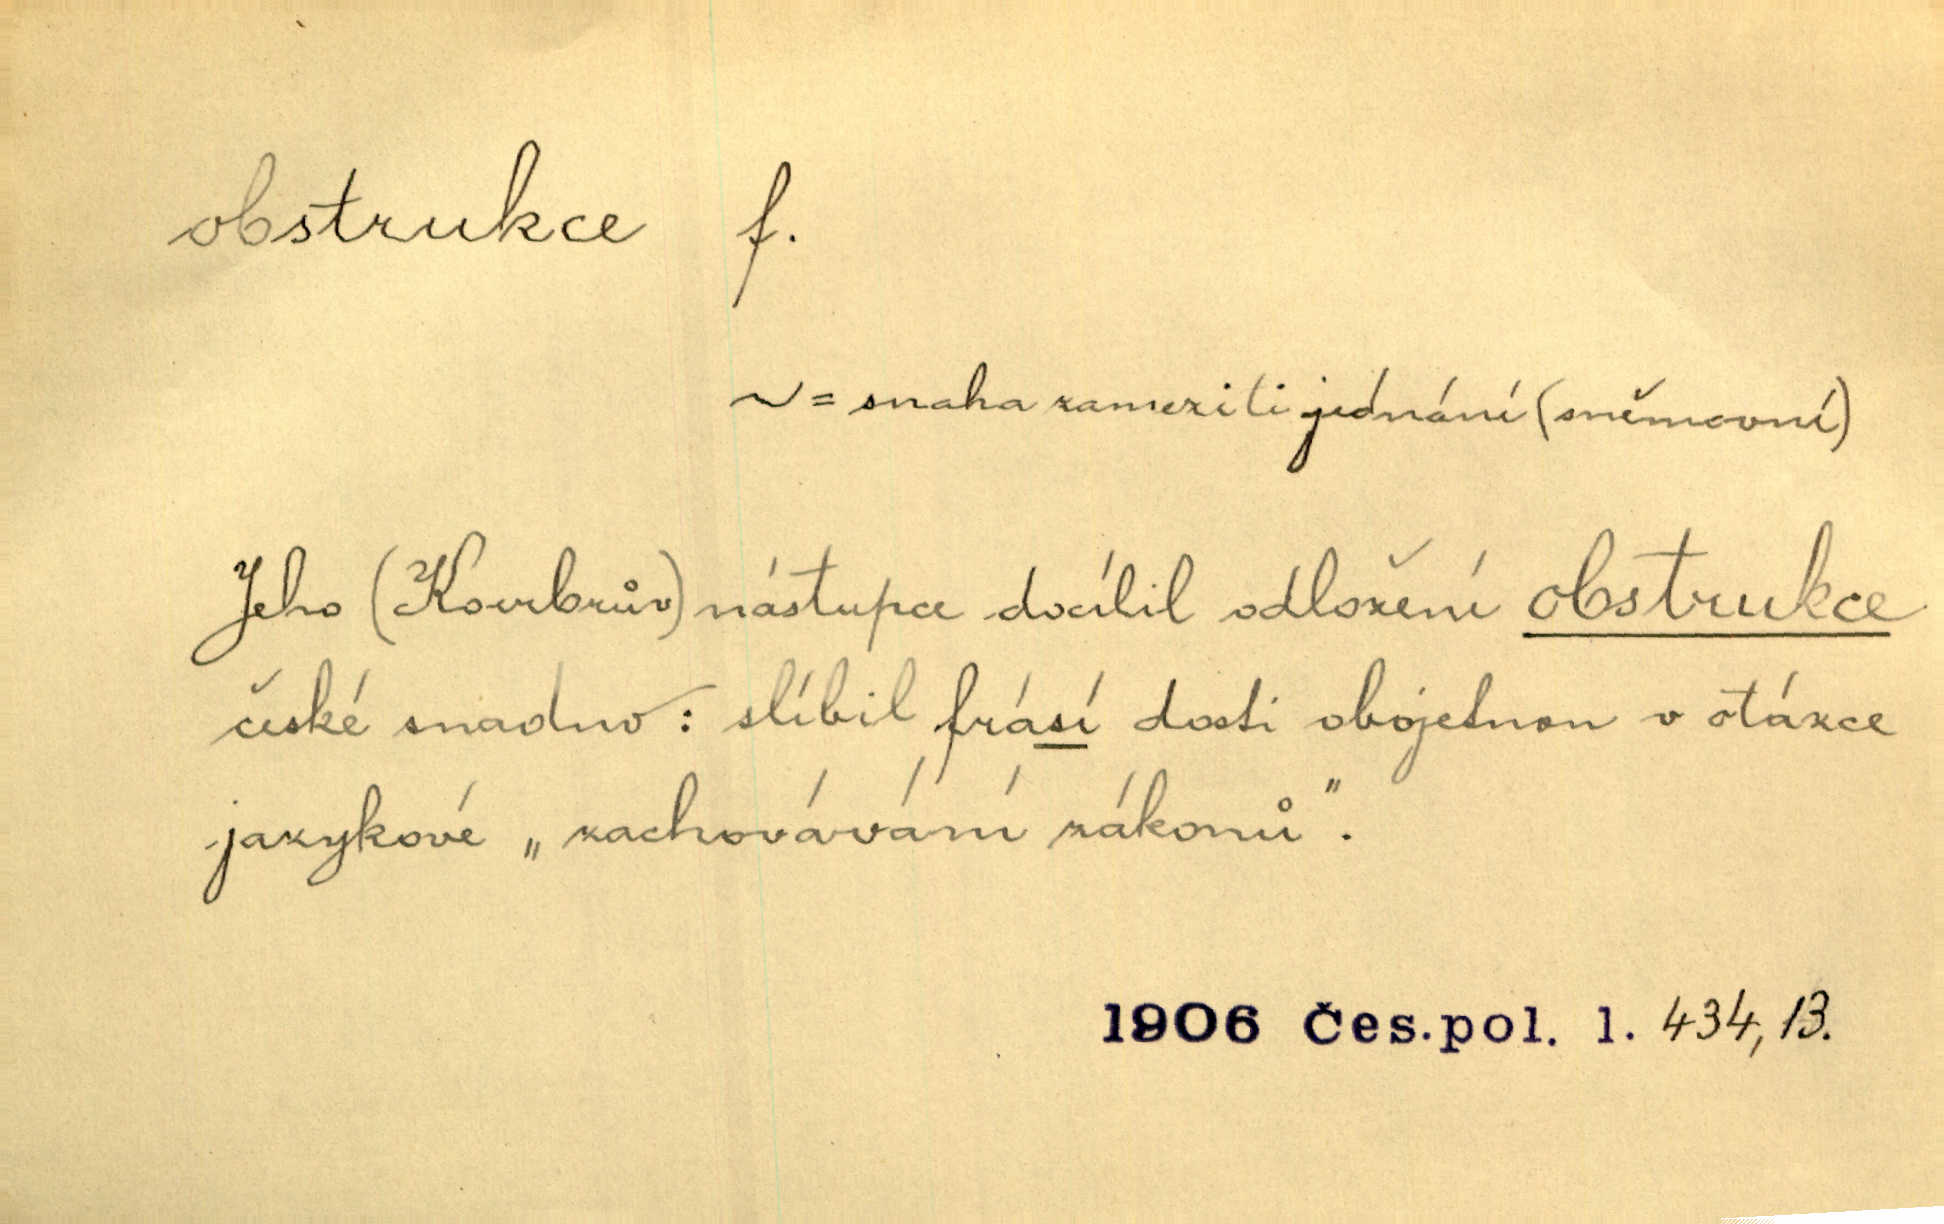 obstrukce f.
~ = snaha zameziti jednání (sněmovní)
Jeho (Körbrův) nástupce docílil odložení obstrukce
české snadno: slíbil frásí dosti obojetnou v otázce
jazykové „zachovávání zákonů".
1906 Čes. pol. l. 434, 13.